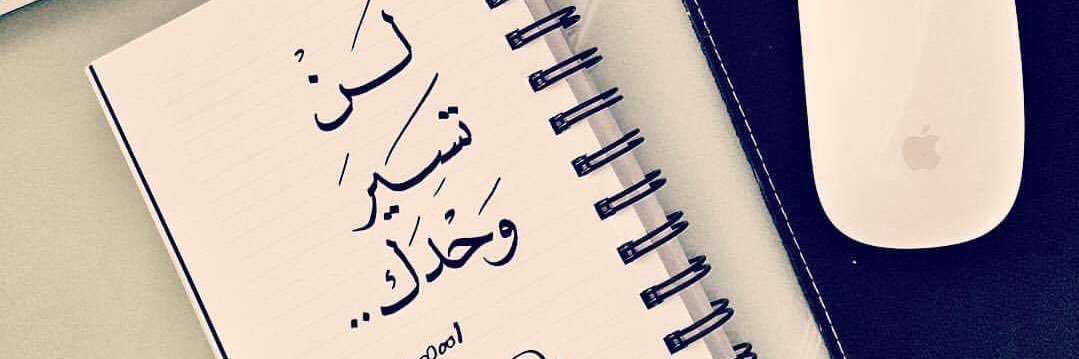 لَنْ
تَسِيرَ
وَحْدَك..